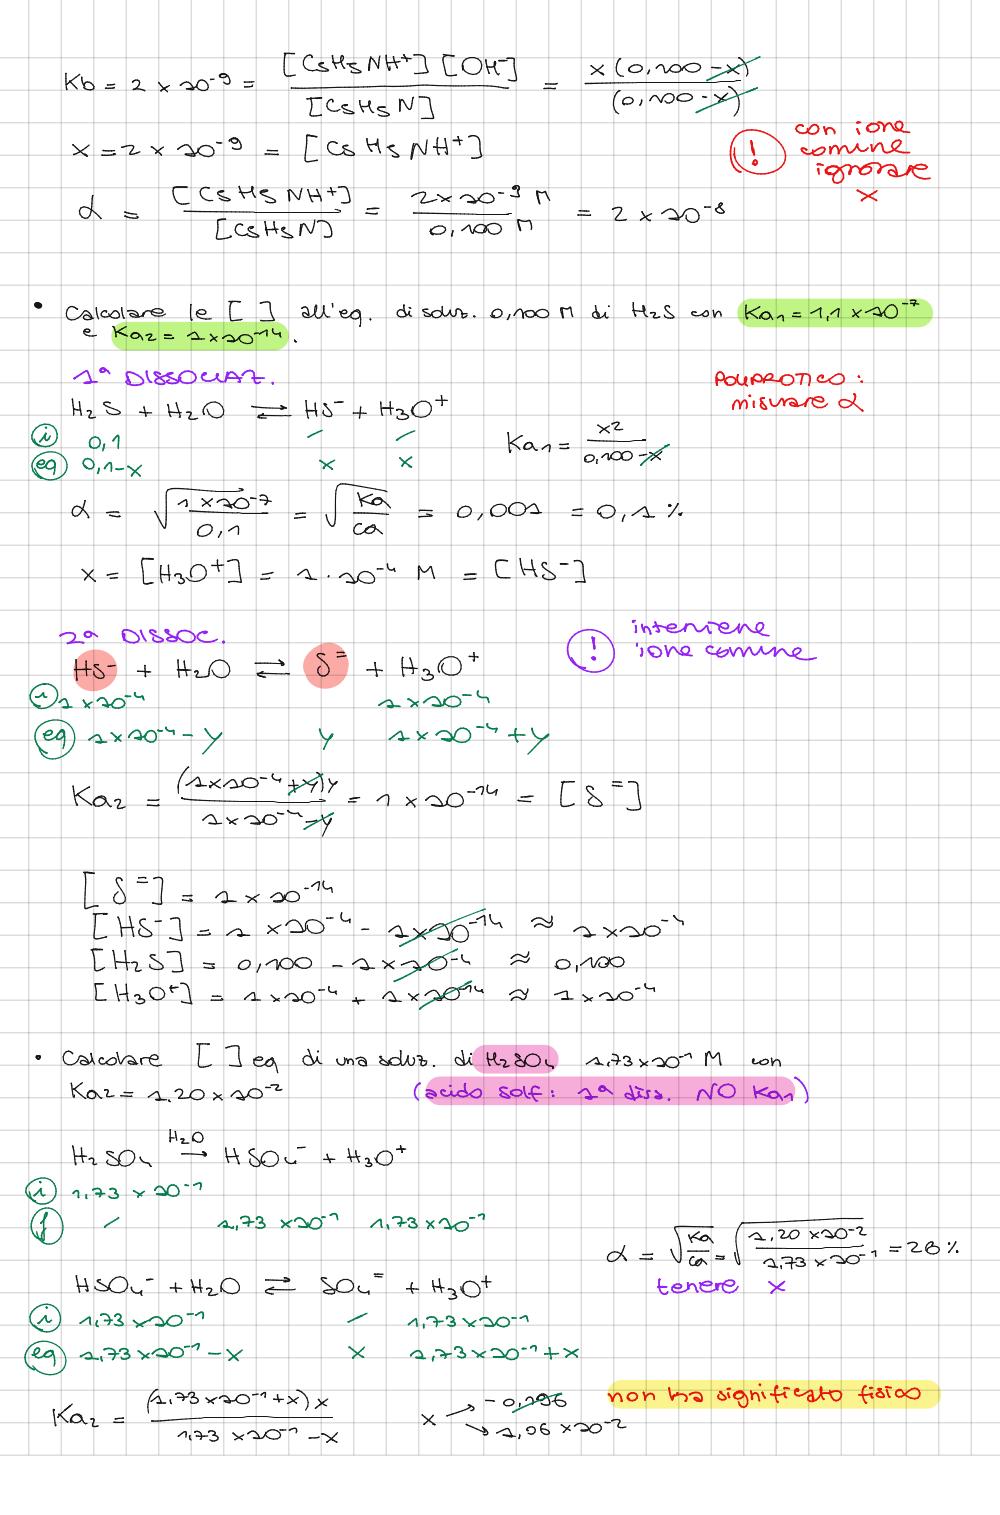 Kb = 2 × 10⁻⁹ = [C5H5NH⁺] [OH⁻] / [C5H5N] = x (0,100 - x) / (0,100 - x)
x = 2 × 10⁻⁹ = [C5H5NH⁺]
! con ione comune ignorare x
α = [C5H5NH⁺] / [C5H5N] = 2 × 10⁻⁹ M / 0,100 M = 2 × 10⁻⁸
• Calcolare le [ ] all'eq. di soluz. 0,100 M di H2S con Ka1 = 1,1 × 10⁻⁷
e Ka2 = 1 × 10⁻¹⁴.
1ª DISSOCIAZ.
POLIPROTICO:
misurare α
H2S + H2O ⇌ HS⁻ + H3O⁺
i 0,1 / /
eq 0,1-x x x
Ka1 = x2 / 0,100 - x
α = √(1 × 10⁻⁷ / 0,1) = √(Ka / ca) = 0,001 = 0,1 %
x = [H3O⁺] = 1 · 10⁻⁴ M = [HS⁻]
2ª DISSOC.
! interviene ione comune
HS⁻ + H2O ⇌ S⁼ + H3O⁺
i 1 × 10⁻⁴ 1 × 10⁻⁴
eq 1 × 10⁻⁴ - y y 1 × 10⁻⁴ + y
Ka2 = (1 × 10⁻⁴ + y) y / 1 × 10⁻⁴ - y = 1 × 10⁻¹⁴ = [S⁼]
[S⁼] = 1 × 10⁻¹⁴
[HS⁻] = 1 × 10⁻⁴ - 1 × 10⁻¹⁴ ≈ 1 × 10⁻⁴
[H2S] = 0,100 - 1 × 10⁻⁴ ≈ 0,100
[H3O⁺] = 1 × 10⁻⁴ + 1 × 10⁻¹⁴ ≈ 1 × 10⁻⁴
• Calcolare [ ] eq di una soluz. di H2SO4 1,73 × 10⁻¹ M con
Ka2 = 1,20 × 10⁻² (acido solf: 1ª diss. NO Ka1)
H2SO4 →(H2O) HSO4⁻ + H3O⁺
i 1,73 × 10⁻¹
f / 1,73 × 10⁻¹ 1,73 × 10⁻¹
α = √(Ka / ca) = √(1,20 × 10⁻² / 1,73 × 10⁻¹) = 26 %
tenere x
HSO4⁻ + H2O ⇌ SO4⁼ + H3O⁺
i 1,73 × 10⁻¹ / 1,73 × 10⁻¹
eq 1,73 × 10⁻¹ - x x 1,73 × 10⁻¹ + x
Ka2 = (1,73 × 10⁻¹ + x) x / 1,73 × 10⁻¹ - x
x → -0,196 non ha significato fisico
→ 1,06 × 10⁻²